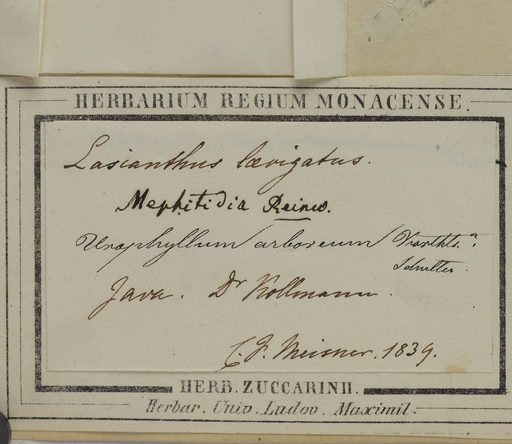 HERBARIUM REGIUM MONACENSE.
Lasianthus lævigatus.
Mephitidia Reinw.
Urophyllum arboreum Korthls.
Java. Dr Kollmann.
C. F. Meisner. 1839.
HERB. ZUCCARINII.
Herbar. Univ. Ludov. Maximil.